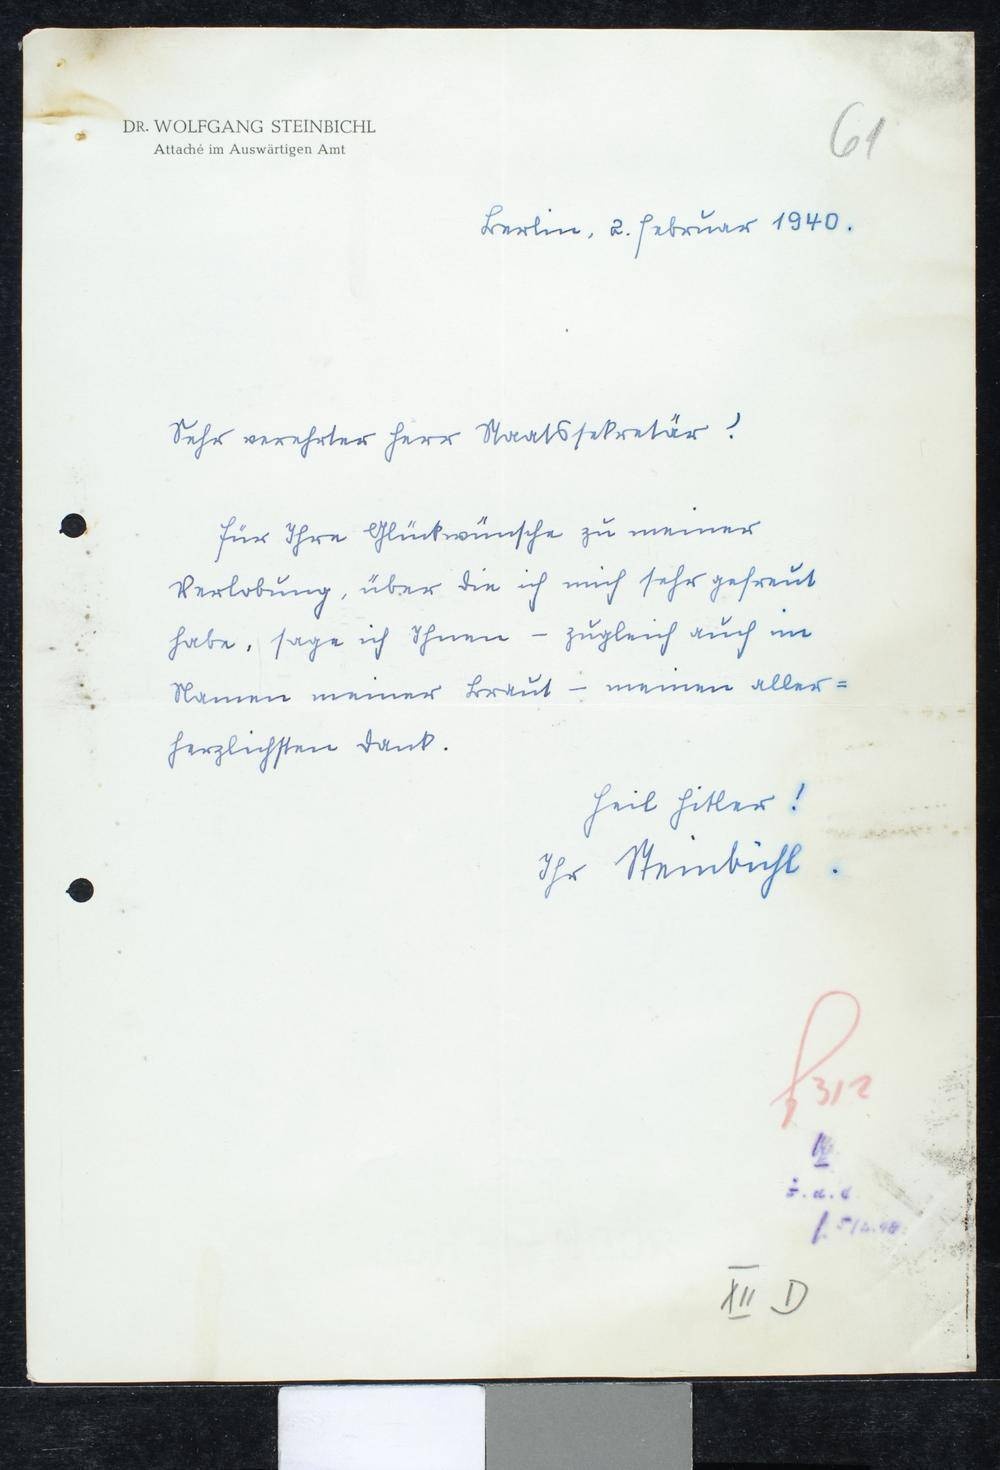 DR. WOLFGANG STEINBICHL
Attaché im Auswärtigen Amt
61
Berlin, 2. Februar 1940.
Sehr verehrter Herr Staatssekretär!
Für Ihre Glückwünsche zu meiner
Verlobung, über die ich mich sehr gefreut
habe, sage ich Ihnen – zugleich auch im
Namen meiner Braut – meinen aller=
herzlichsten Dank.
Heil Hitler!
Ihr Steinbichl.
3/2
z.d.A.
XII D